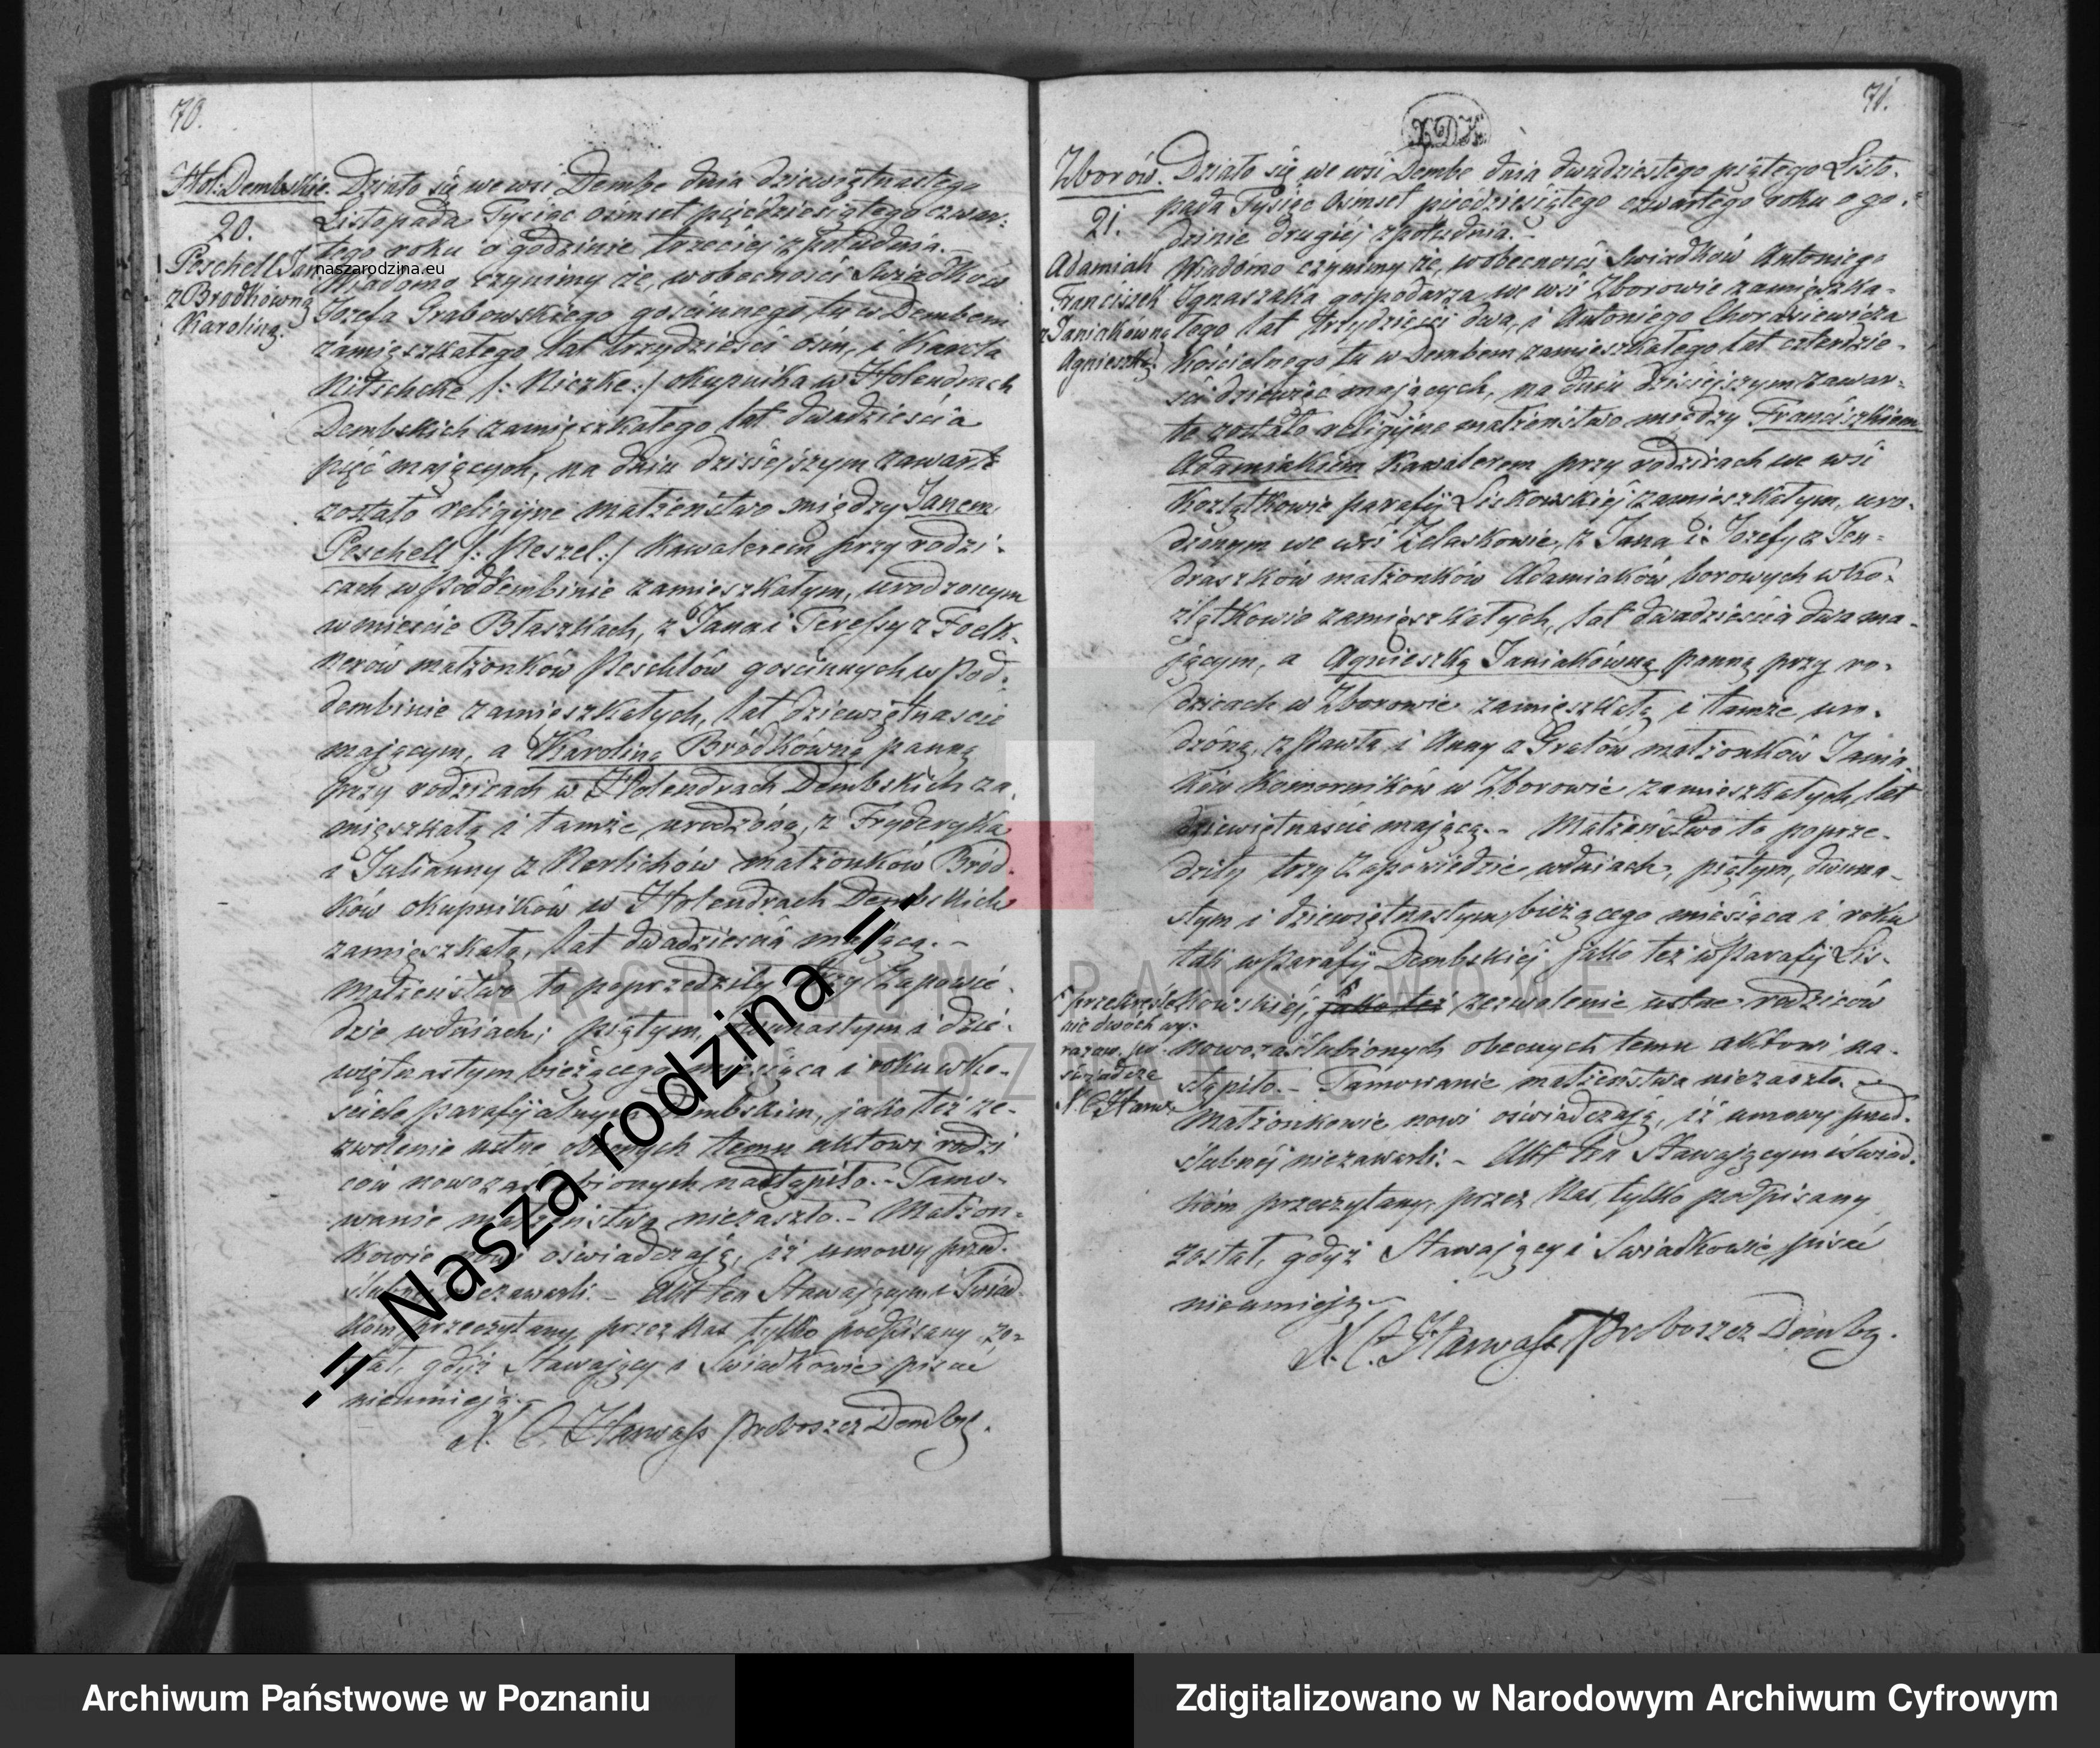 70.
Hol: Dembskie.
20.
Peschell Jan
z Bródkówną
Karoliną.
Działo się we wsi Dembe dnia dziewiętnastego
Listopada Tysiąc ośmset pięćdziesiątego czwar-
tego roku o godzinie trzeciej z południa.-
Wiadomo czynimy że, w obecności Swiadków
Jozefa Grabowskiego gościnnego tu w Dembem
zamięszkałego lat trzydzieści ośm, i Karola
Nitschke /: Niczke :/ okupnika w Holendrach
Dembskich zamięszkałego lat dwadzieścia
pięć mających, na dniu dzisiejszym zawarte
zostało religijne małżeństwo między Janem
Peschell /: Peszel :/ Kawalerem przy rodzi-
cach w Poddembinie zamieszkałym, urodzonym
w mieście Błaszkach, z Jana i Teressy z Foelk-
nerów małżonków Peschlów gościnnych w Pod-
dembinie zamieszkałych, lat dziewiętnaście
mającym, a Karoliną Bródkówną panną
przy rodzicach w Holendrach Dembskich za-
mięszkałą i tamże urodzóną, z Fryderyka
i Julianny z Nerlichów małżonków Bród-
ków okupników w Holendrach Dembskich
zamięszkałą, lat dwadzieścia mającą.-
Małżeństwo to poprzedziły trzy Zapowie-
dzie w dniach; piątym, dwunastym i dzie-
więtnastym bieżącego miesiąca i roku w Ko-
ściele parafijalnym Dembskim, jako też ze-
zwolenie ustne obecnych temu aktowi rodzi
ców nowozaślubionych nastąpiło.- Tamo-
wanie małżeństwa niezaszło.- Małżon-
kowie nowi oświadczają, iż umowy przed-
ślubnej niezawarli.- Akt ten Stawającym i Świad-
kom przeczytany, przez Nas tylko podpisany zo-
stał, gdyż Stawający i Swiadkowie pisać
nieumieją.-
X. C. Harwass Proboszcz Dembs.
71.
XDK
Zborów.
21.
Adamiak
Franciszek
z Janiakówną
Agnieszką.
Działo się we wsi Dembe dnia dwudziestego piątego Listo-
pada Tysiąc Ośmset pięćdziesiątego czwartego roku o go-
dzinie drugiéj z południa.-
Wiadomo czynimy że, w obecności Swiadków Antoniego
Ignaszaka gospodarza we wsi Zborowie zamięszka-
łego lat trzydzieści dwa, i Antoniego Chorąsiewicza
Kościelnego tu w Dembem zamieszkałego lat czterdzie-
ści dziewięc mających, na dniu dzisiejszym zawar-
te zostało religijne małżeństwo między Franciszkiem
Adamiakiem Kawalerem przy rodzicach we wsi
Kozłątkowie parafij Liskowskiéj zamieszkałym, uro-
dzonym we wsi Zelaskowie, z Jana i Jozefy z Jen-
draszków małżonków Adamiaków borowych w Ko-
złątkowie zamięszkałych, lat dwadzieścia dwa ma-
jącym, a Agnieszką Janiakówną panną przy ro-
dzicach w Zborowie zamięszkałą i tamże uro-
dzóną, z Pawła i Anny z Gratów małżonków Jania
ków Komorników w Zborowie zamieszkałych, lat
dziewiętnaście mającą.- Małżeństwo to poprze-
dziły trzy Zapowiedzie w dniach, piątym, dwuna-
stym i dziewiętnastym bieżącego miesiąca i roku
tak w Parafij Dembskiej jako też w Parafij Lis-
kowskiéj, jako też zezwolenie ustne rodziców
nowozaślubionych obecnych temu aktowi na-
stąpiło.- Tamowanie małżeństwa niezaszło.-
Małżonkowie nowi oświadczają, iż umowy przed-
ślubnéj niezawarli.- Akt ten Stawającym i Świad-
kom przeczytany, przez Nas tylko podpisany
został, gdyż Stawający i Swiadkowie pisać
nieumieją.-
X. C. Harwass Proboszcz Dembs.
przekreśle
nie dwóch wy-
razów po-
świadcza
X. C. Harw.
naszarodzina.eu
-= Nasza rodzina =-
ARCHIWUM PAŃSTWOWE
W POZNANIU
Archiwum Państwowe w Poznaniu
Zdigitalizowano w Narodowym Archiwum Cyfrowym